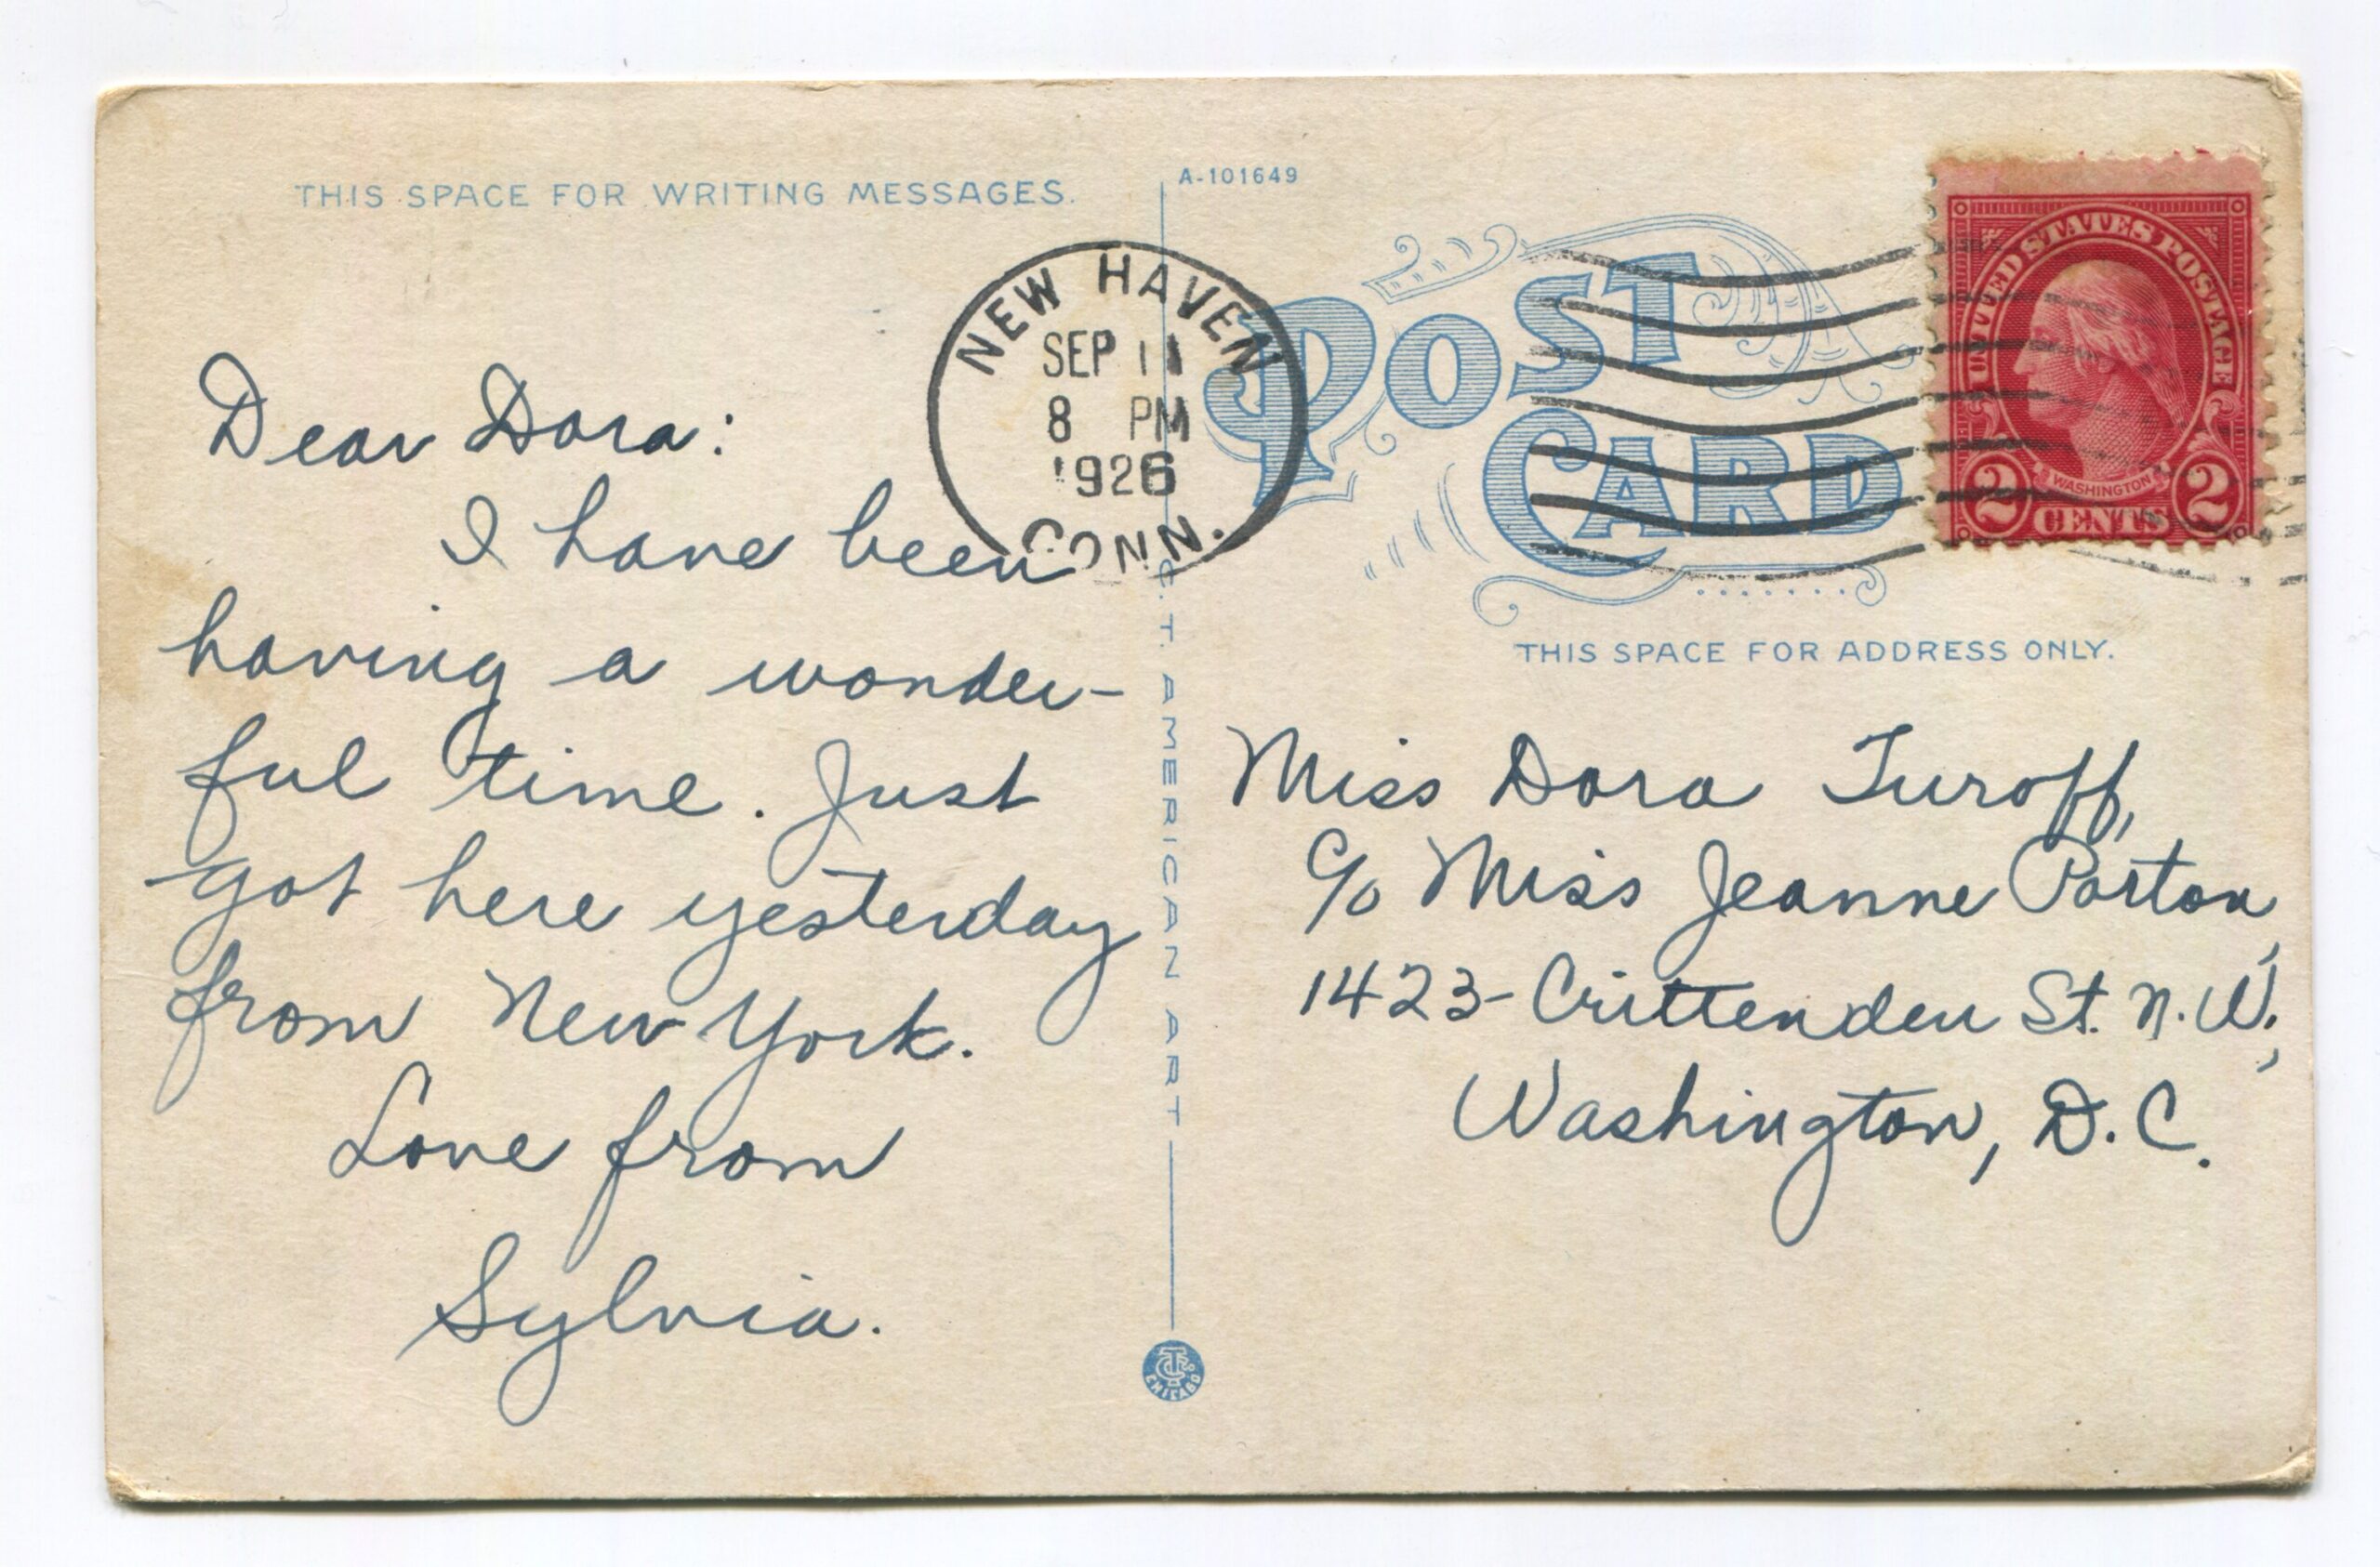 THIS SPACE FOR WRITING MESSAGES.
Dear Dora:
I have been
having a wonder-
ful time. Just
got here yesterday
from New York.
Love from
Sylvia.
A-101649
C.T. AMERICAN ART
CT Co
CHICAGO
NEW HAVEN
SEP 11
8 PM
1926
CONN.
POST
CARD
UNITED STATES POSTAGE
WASHINGTON
2 CENTS 2
THIS SPACE FOR ADDRESS ONLY.
Miss Dora Turoff,
c/o Miss Jeanne Porton,
1423-Crittenden St. N.W.,
Washington, D.C.